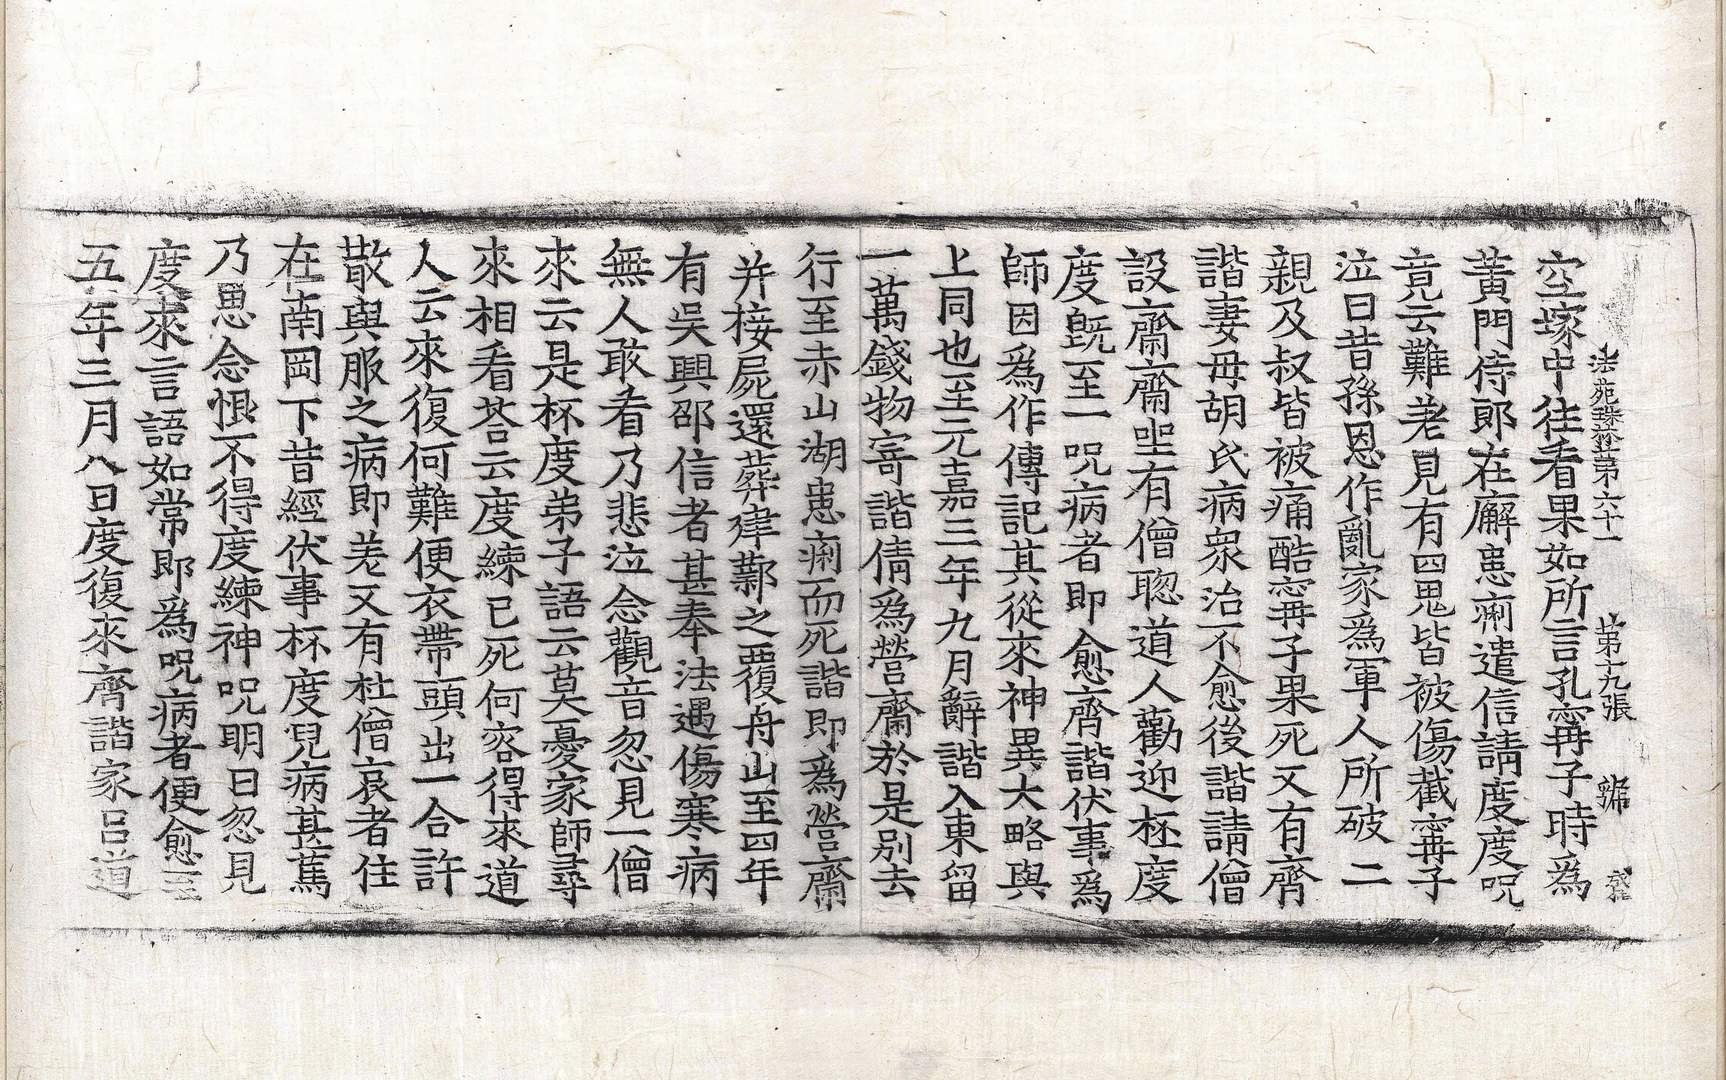 法苑珠林第六十一 第十九張 號
空塚中往看果如所言孔寗子時爲
黃門侍郎在廨患痢遣信請度度呪
竟云難差見有四鬼皆被傷截寗子
泣曰昔孫恩作亂家爲軍人所破二
親及叔皆被痛酷寗子果死又有齊
諧妻母胡氏病衆治不愈後諧請僧
設齋齋坐有僧聦道人勸迎杯度
度旣至一呪病者即愈齊諧伏事爲
師因爲作傳記其從來神異大略與
上同也至元嘉三年九月辭諧入東留
一萬錢物寄諧倩爲營齋於是別去
行至赤山湖患痢而死諧即爲營齋
幷接屍還葬建鄴之覆舟山至四年
有吳興邵信者甚奉法遇傷寒病
無人敢看乃悲泣念觀音忽見一僧
來云是杯度弟子語云莫憂家師尋
來相看荅云度練已死何容得來道
人云來復何難便衣帶頭出一合許
散與服之病即差又有杜僧哀者住
在南岡下昔經伏事杯度兒病甚篤
乃思念恨不得度練神呪明日忽見
度來言語如常即爲呪病者便愈至
五年三月八日度復來齊諧家呂道